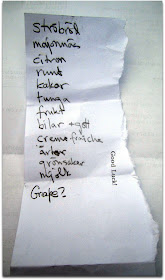 ströbröd
majonnäs
citron
rund
kakor
tunga
frukt
bilar +gott
creme fraiche
ärtor
grönsaker
mjölk
Grape?
Good Luck!